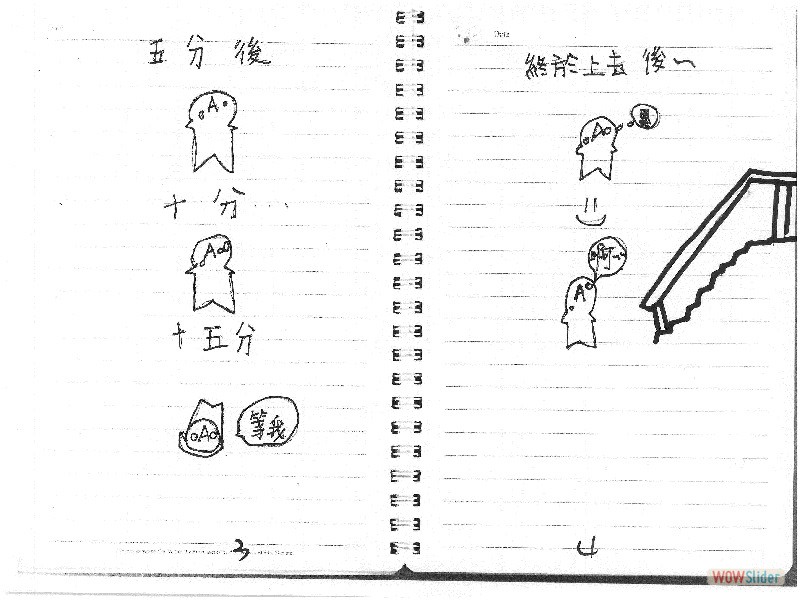 五分後
十分...
十五分
等我
3
Date
終於上去後~
啊~
4
WOWSlider